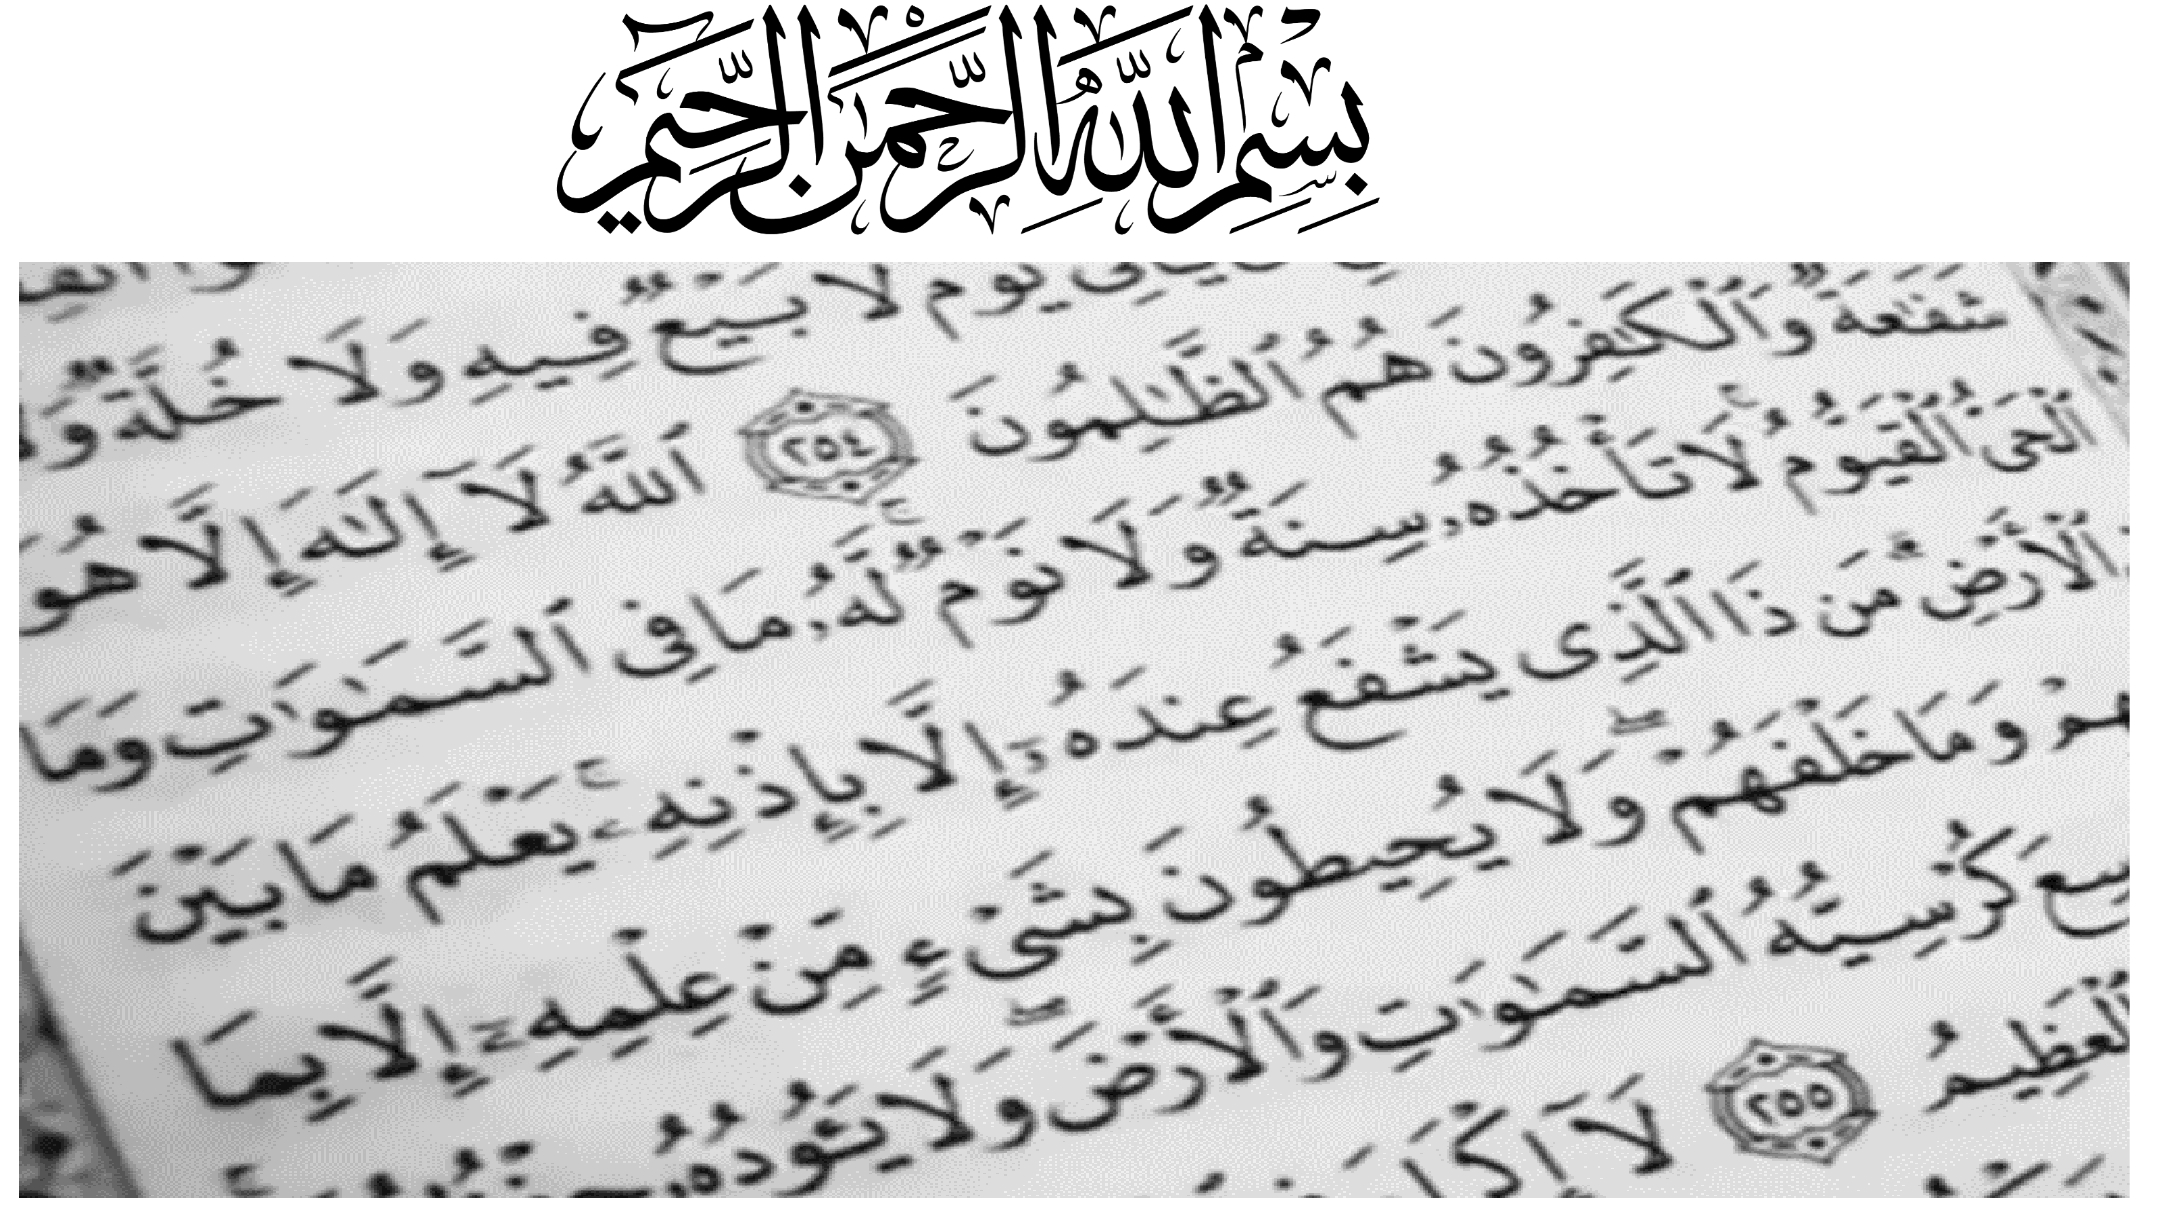 بِسْمِ اللَّهِ الرَّحْمَٰنِ الرَّحِيمِ
يَوْمٌ لَّا بَيْعٌ فِيهِ وَلَا خُلَّةٌ
شَفَٰعَةٌ وَٱلْكَٰفِرُونَ هُمُ ٱلظَّٰلِمُونَ ٢٥٤ ٱللَّهُ لَآ إِلَٰهَ إِلَّا هُوَ
ٱلْحَىُّ ٱلْقَيُّومُ لَا تَأْخُذُهُۥ سِنَةٌ وَلَا نَوْمٌ لَّهُۥ مَا فِى ٱلسَّمَٰوَٰتِ وَمَا
ٱلْأَرْضِ مَن ذَا ٱلَّذِى يَشْفَعُ عِندَهُۥٓ إِلَّا بِإِذْنِهِۦ يَعْلَمُ مَا بَيْنَ
وَمَا خَلْفَهُمْ وَلَا يُحِيطُونَ بِشَىْءٍ مِّنْ عِلْمِهِۦٓ إِلَّا بِمَا
كُرْسِيُّهُ ٱلسَّمَٰوَٰتِ وَٱلْأَرْضَ وَلَا يَـُٔودُهُۥ
ٱلْعَظِيمُ ٢٥٥ لَآ